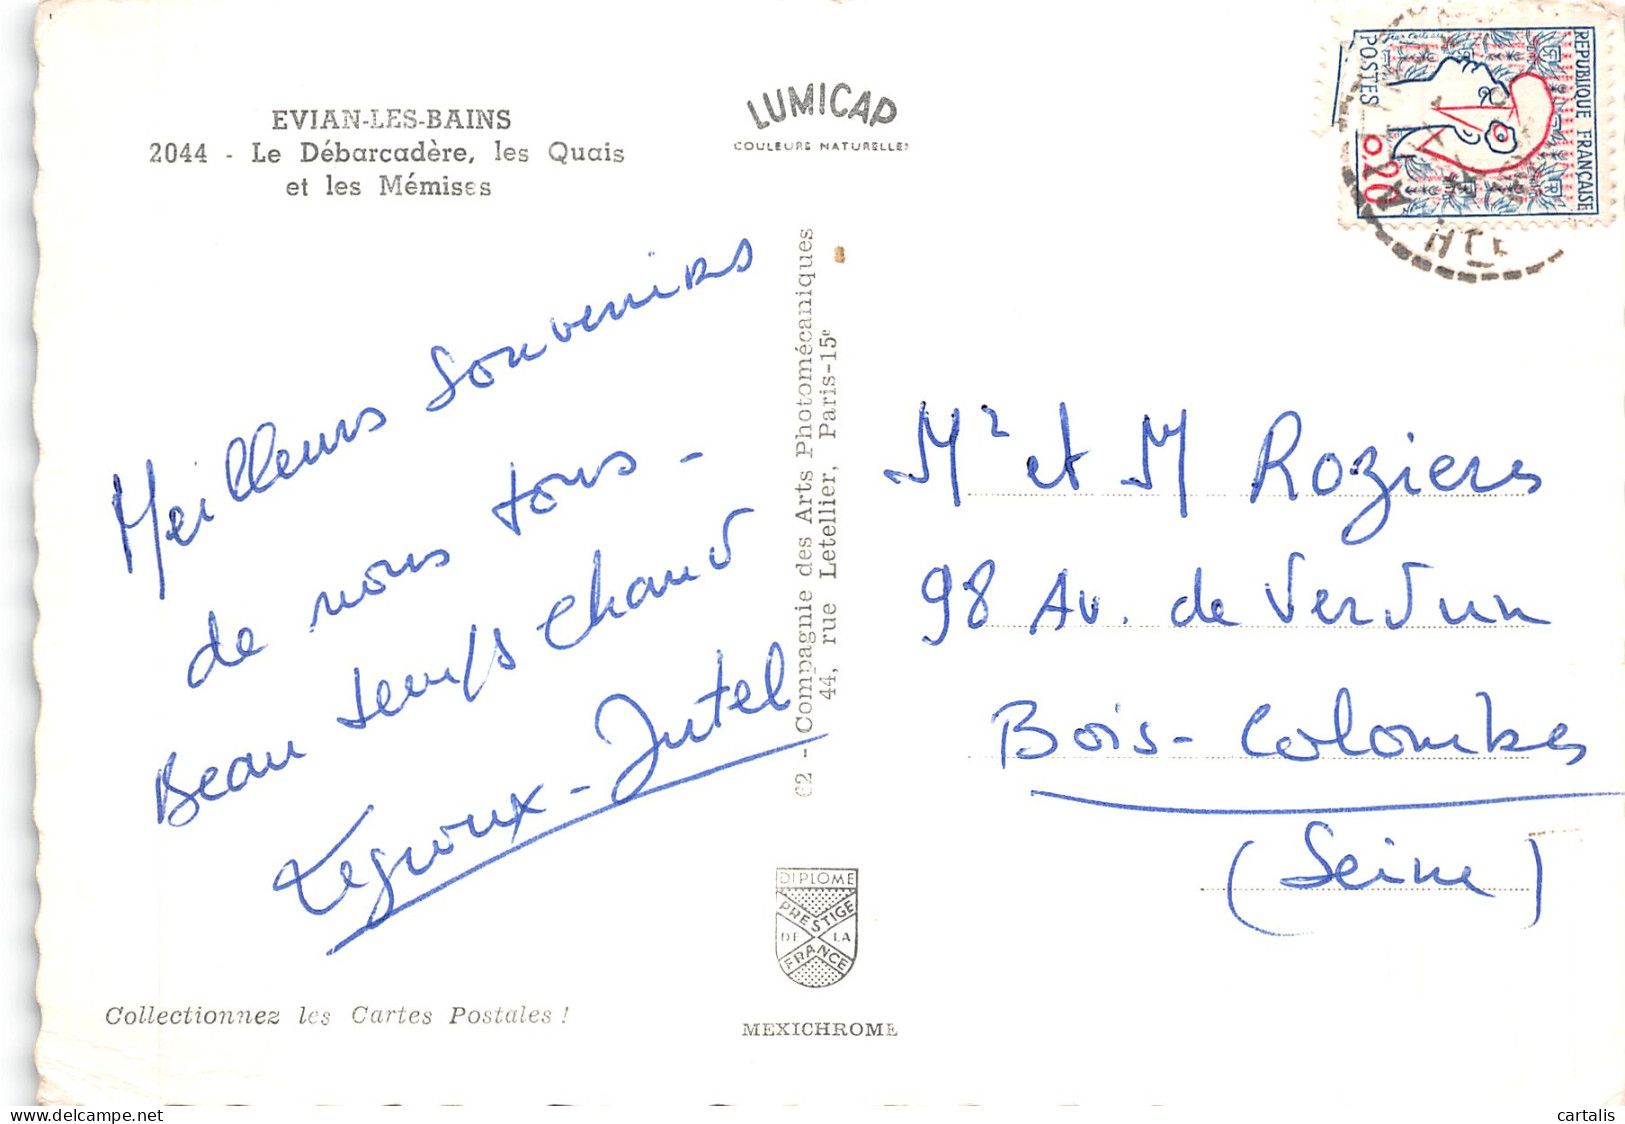 EVIAN-LES-BAINS
2044 - Le Débarcadère, les Quais
et les Mémises
LUMICAP
COULEURS NATURELLES
Meilleurs souvenirs
de nous tous -
Beau temps chaud
Legroux - Jutel
Collectionnez les Cartes Postales !
62 - Compagnie des Arts Photomécaniques
44, rue Letellier, Paris-15e
DIPLOME
PRESTIGE
DE LA
FRANCE
MEXICHROME
REPUBLIQUE FRANÇAISE
POSTES
0,20
Mr et M Rozieres
98 Av. de Verdun
Bois-Colombes
(Seine)
delcampe.net
cartalis